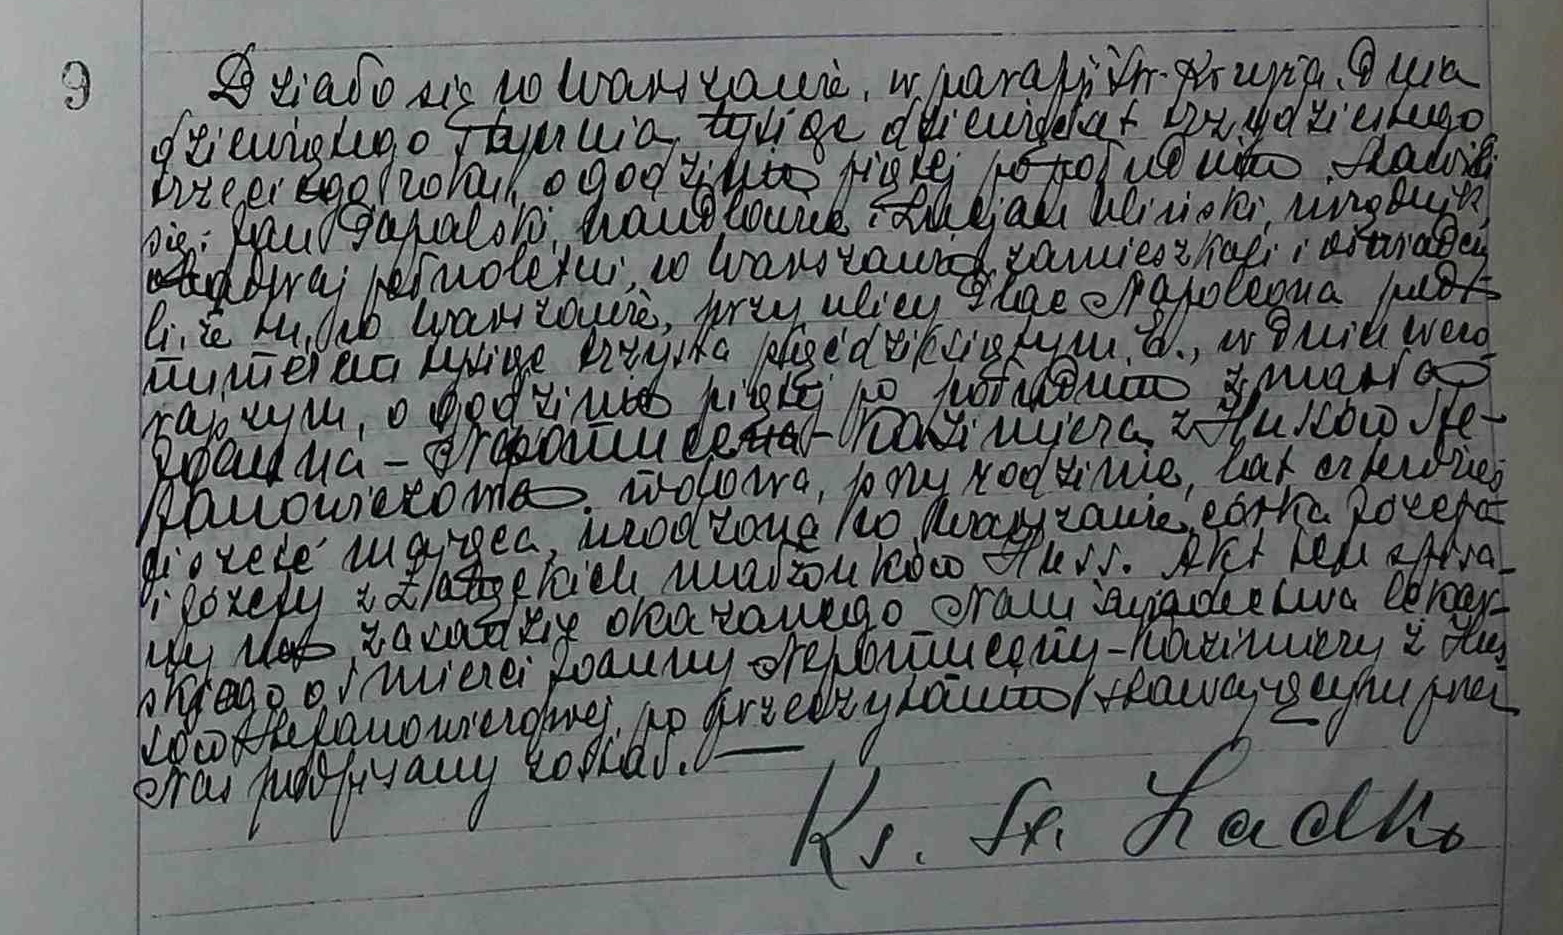 9
Działo się w Warszawie, w parafji Św. Krzyża. Dnia
dziewiątego stycznia, tysiąc dziewięćset trzydziestego
trzeciego roku, o godzinie piątej po południu. Stawili
się: Jan Papalski, handlowiec i Lucjan Uliński, urzędnik,
obydwaj pełnoletni, w Warszawie zamieszkali i oświadczy
li, że tu, w Warszawie, przy ulicy Plac Napoleona pod
numerem tysiąc trzysta pięćdziesiątym d., w dniu wczo
rajszym, o godzinie piątej po południu zmarła
Joanna-Nepomucena-Kazimiera z Hussów Ste-
fanowiczowa, wdowa, przy rodzinie, lat czterdzieś
ci sześć mająca, urodzona w Warszawie, córka Józefa
i Józefy z małżonków Huss. Akt ten spisa-
ny na zasadzie okazanego Nam świadectwa lekar-
skiego o śmierci Joanny Nepomuceny-Kazimiery z Hus
sów Stefanowiczowej, po przeczytaniu stawającym przez
Nas podpisany został.
Ks. St. Ładko